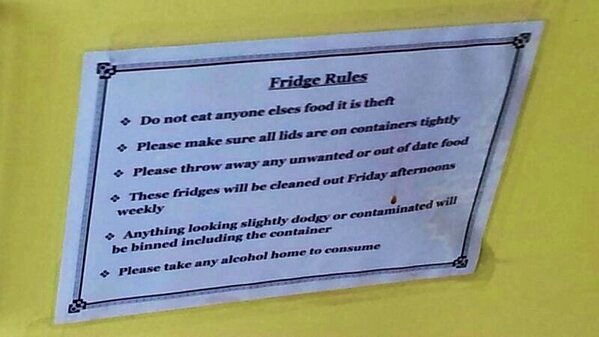 Fridge Rules
❖ Do not eat anyone elses food it is theft
❖ Please make sure all lids are on containers tightly
❖ Please throw away any unwanted or out of date food
❖ These fridges will be cleaned out Friday afternoons
weekly
❖ Anything looking slightly dodgy or contaminated will
be binned including the container
❖ Please take any alcohol home to consume